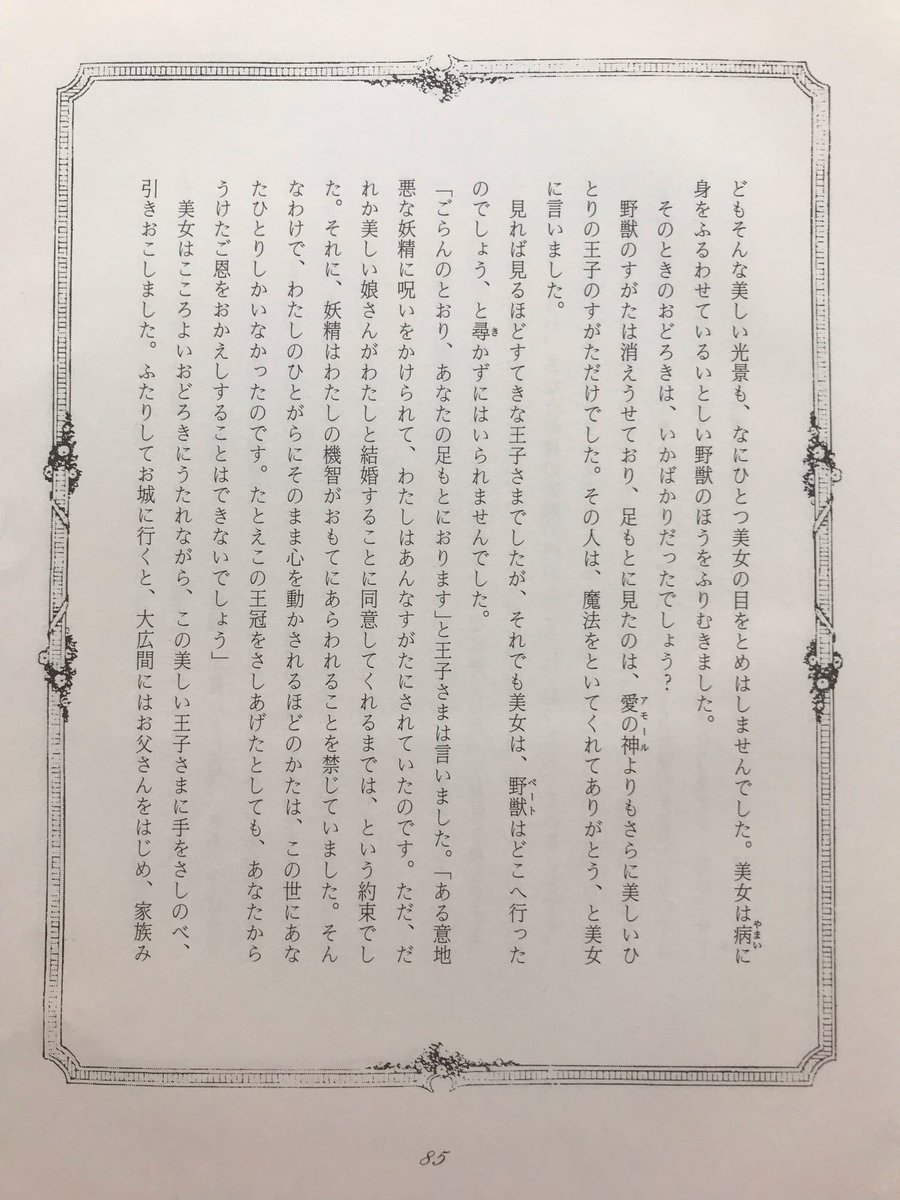 どもそんな美しい光景も、なにひとつ美女の目をとめはしませんでした。美女は病に
身をふるわせているいとしい野獣のほうをふりむきました。
そのときのおどろきは、いかばかりだったでしょう?
野獣のすがたは消えうせており、足もとに見たのは、愛の神よりもさらに美しいひ
とりの王子のすがただけでした。その人は、魔法をといてくれてありがとう、と美女
に言いました。
見れば見るほどすてきな王子さまでしたが、それでも美女は、野獣はどこへ行った
のでしょう、と尋かずにはいられませんでした。
「ごらんのとおり、あなたの足もとにおります」と王子さまは言いました。「ある意地
悪な妖精に呪いをかけられて、わたしはあんなすがたにされていたのです。ただ、だ
れか美しい娘さんがわたしと結婚することに同意してくれるまでは、という約束でし
た。それに、妖精はわたしの機智がおもてにあらわれることを禁じていました。そん
なわけで、わたしのひとがらにそのまま心を動かされるほどのかたは、この世にあな
たひとりしかいなかったのです。たとえこの王冠をさしあげたとしても、あなたから
うけたご恩をおかえしすることはできないでしょう」
美女はこころよいおどろきにうたれながら、この美しい王子さまに手をさしのべ、
引きおこしました。ふたりしてお城に行くと、大広間にはお父さんをはじめ、家族み
85